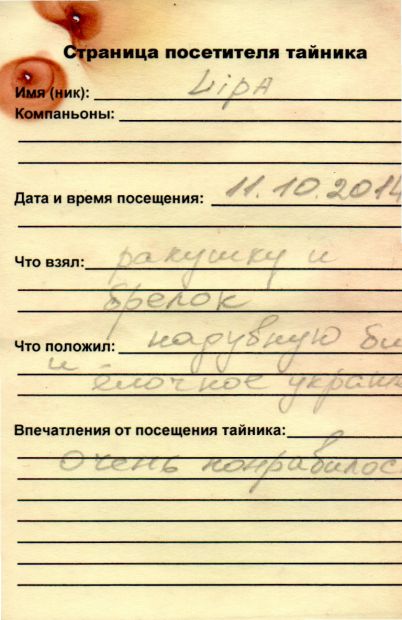 Страница посетителя тайника
Имя (ник): LipA
Компаньоны:
Дата и время посещения: 11.10.2014
Что взял: ракушку и
брелок
Что положил: надувную
и ёлочное
Впечатления от посещения тайника:
Очень понравилос